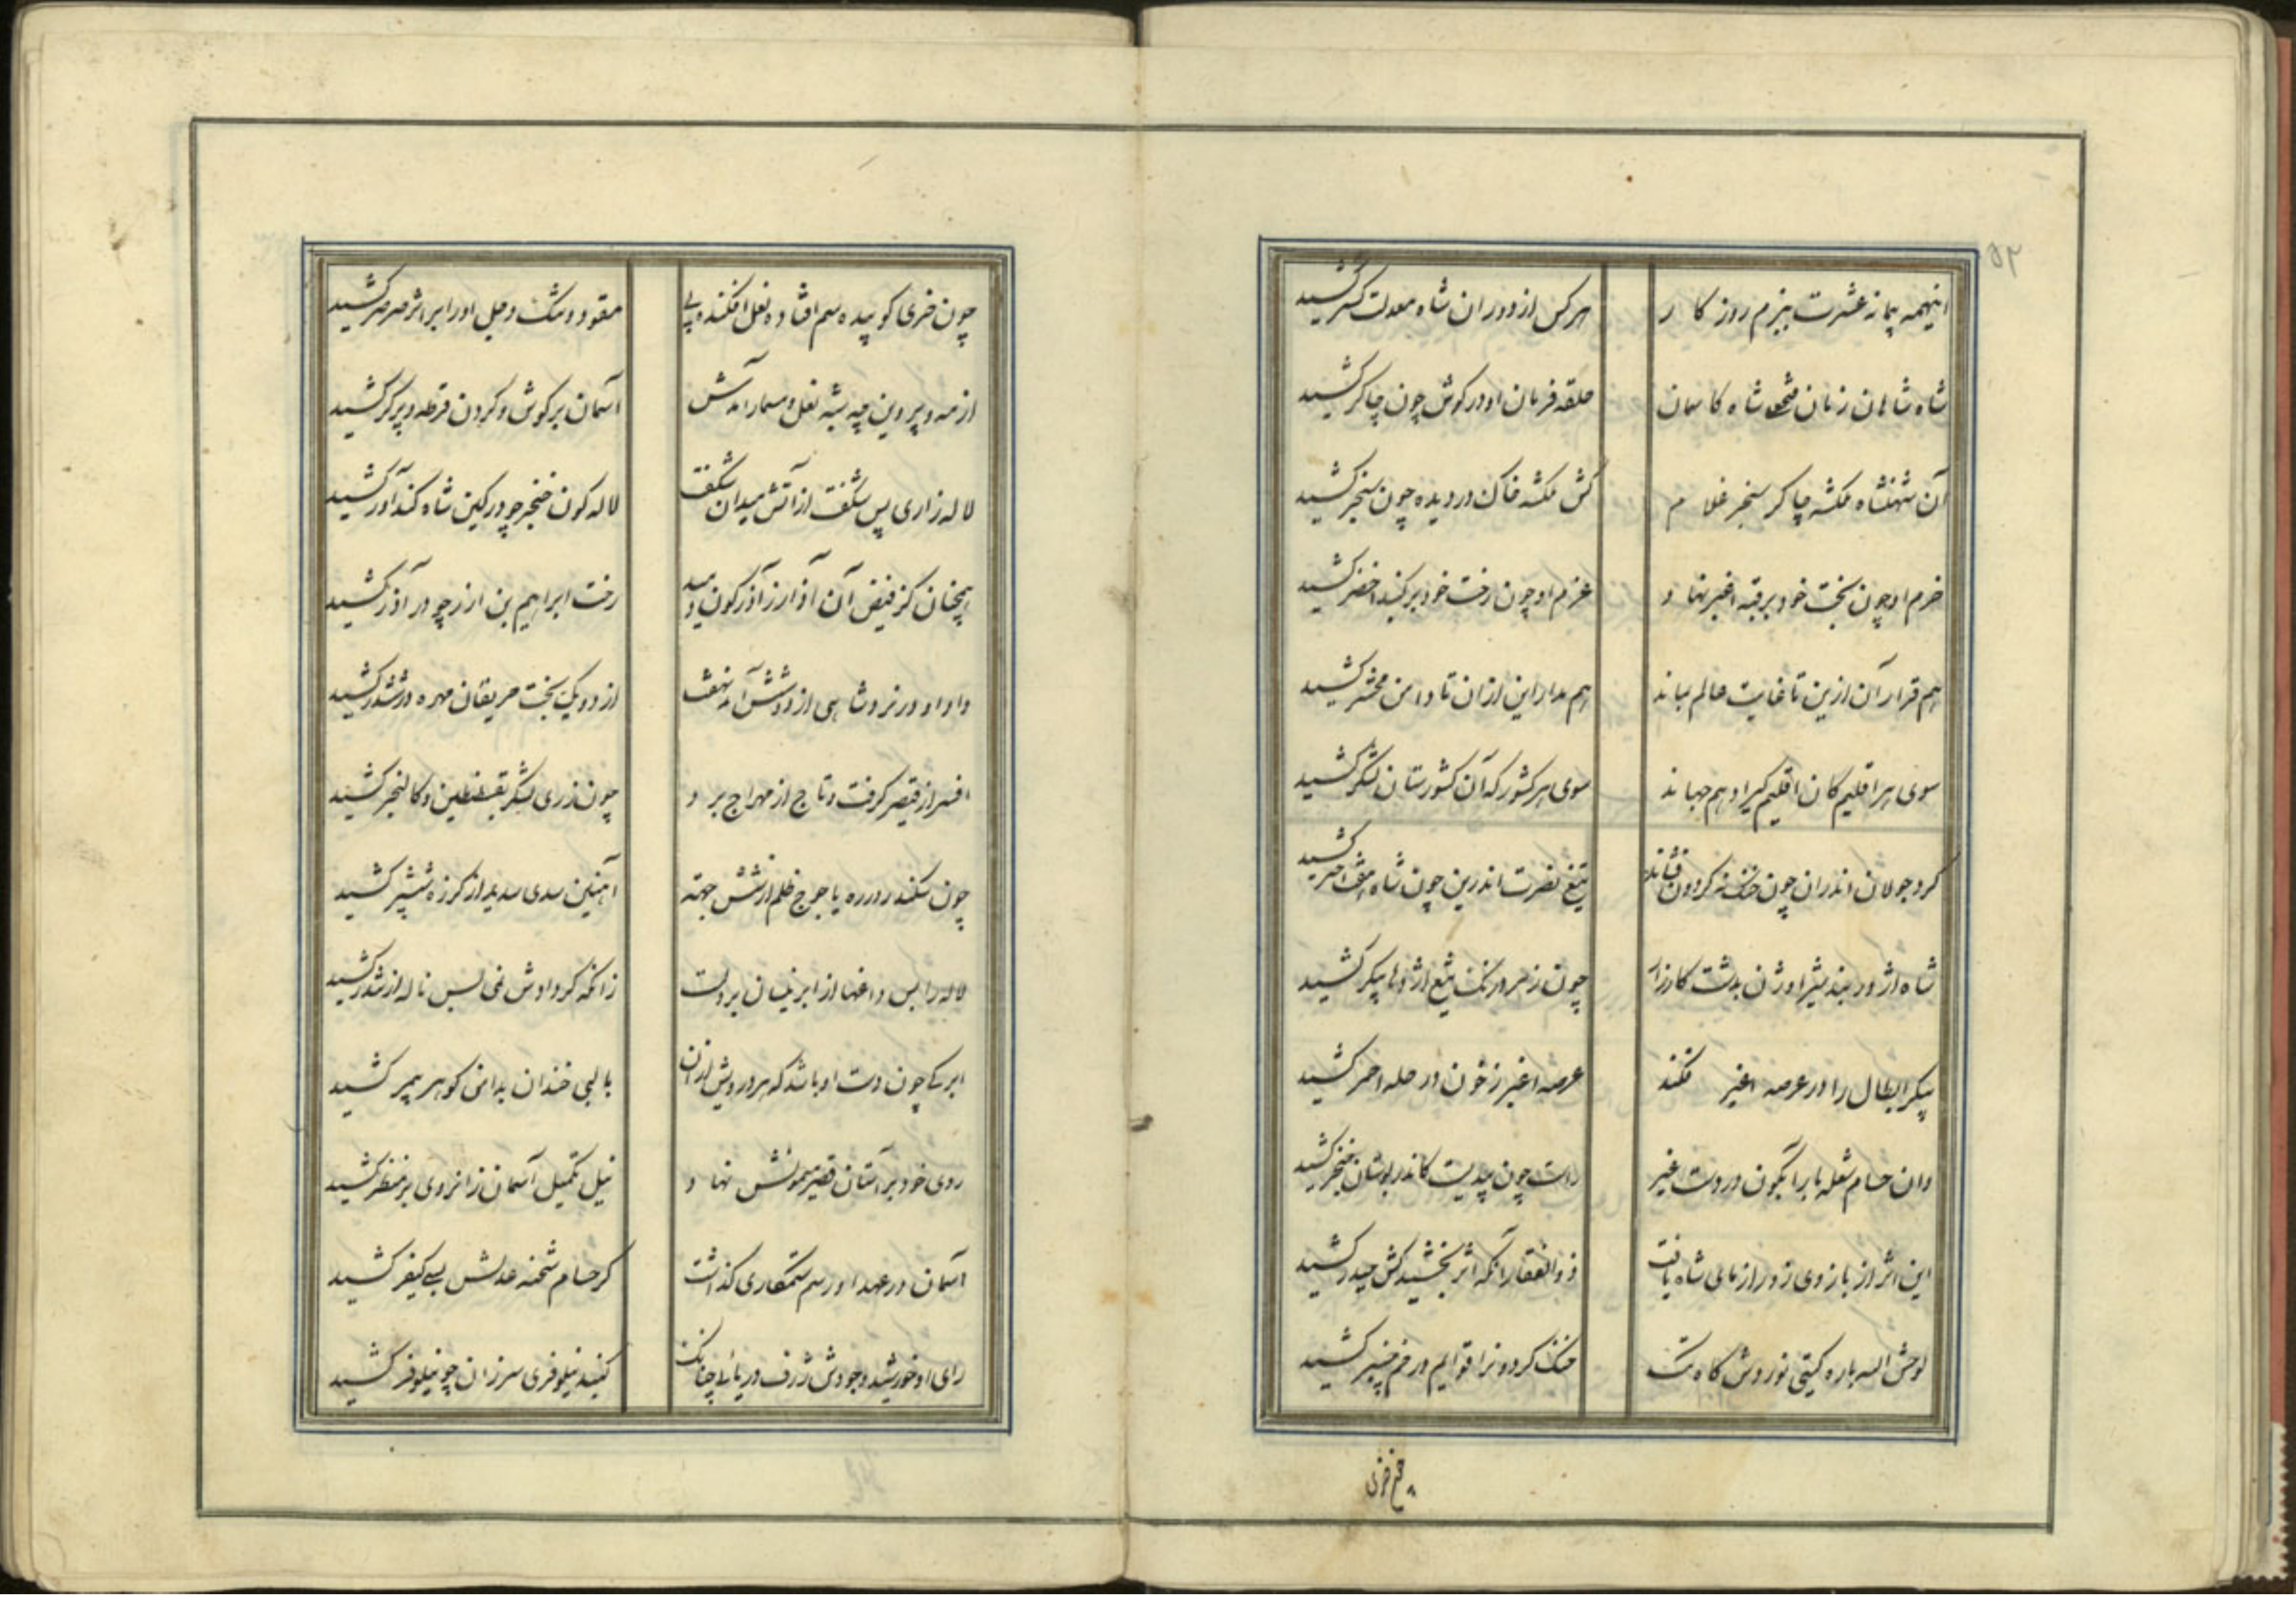 ۵۲
اینهمه پیمانه عشرت ببزم روزکار
هرکس از دوران شاه معدلت کستر کشید
شاه شاهان زمان فتحعلی شاه کاسمان
حلقه فرمان او در کوش چون چاکر کشید
آن شهنشاه ملکشه چاکر سنجر غلام
کش ملکشه خاک در دیده چون سنجر کشید
حزم او چون تخت خود بر قبه اغبر نهاد
عزم او چون رخت خود بر کنبد اخضر کشید
هم قرار آن ازین تا غایت عالم بماند
هم مدار این ازان تا دامن محشر کشید
سوی هر اقلیم کان اقلیم کیر ادهم جهاند
سوی هر کشور که آن کشورستان لشکر کشید
کرد جولان اندران چون خنک نه کردون فشاند
تیغ نصرت اندرین چون شاه هفت اختر کشید
شاه اژدر بند شیر اوژن بدشت کارزار
چون ز مرد رنک تیغ اژدها پیکر کشید
پیکر ابطال را در عرصه اغبر فکند
عرصه اغبر ز خون در حله احمر کشید
وان حسام شعله بار آبکون در دست غیر
راست چون بیدیست کاندر بوستان خنجر کشید
این اثر از بازوی زورازمای شاه یافت
ذوالفقار آنکه اثر بخشید کش حیدر کشید
لوحش الله باره کیتی نوردش کاه تک
خنک کردونرا قوایم در خم چنبر کشید
چون خری کو پیده سم افتاده نعل افکنده پی
مقود و تنک و جل اورا بر اثر صرصر کشید
از مه و پروین چه بشه نعل و مسمار آمدش
آسمان بر کوش و کردون قرطه و پرکر کشید
لاله زاری پس شکفت از آتش میدان شکفت
لاله کون خنجر چو در کین شاه کندآور کشید
همچنان کز فیض آن آذار ز آذرکون دمید
رخت ابراهیم بن ازر چو در آذر کشید
داو او در نرد شاهی از دو شش آمد نهفت
از دو یک بخت حریفان مهره در ششدر کشید
افسر از قیصر کرفت و تاج از مهراج برد
چون ز ری لشکر بقسطنطین و کالنجر کشید
چون سکندر در ره یاجوج ظلم از شش جهته
آهنین سدی سدید از کرزه ششپر کشید
لاله را بس داغها از ابر نیسان بر دلست
زانکه کرد اوش نمی بس ناله از تندر کشید
ابر کی چون دست او باشد که هر درویش ازان
با لبی خندان بدامن کوهر بیمر کشید
روی خود بر آستان قصر میمونش نهاد
نیل تکمیل آسمان زانروی بر منظر کشید
آسمان در عهد او رسم ستمکاری کذاشت
کز حسام شحنه عدلش بسی کیفر کشید
رای او خورشید و جودش ژرف دریائی چنانک
کنبد نیلوفری سر زان چو نیلوفر کشید